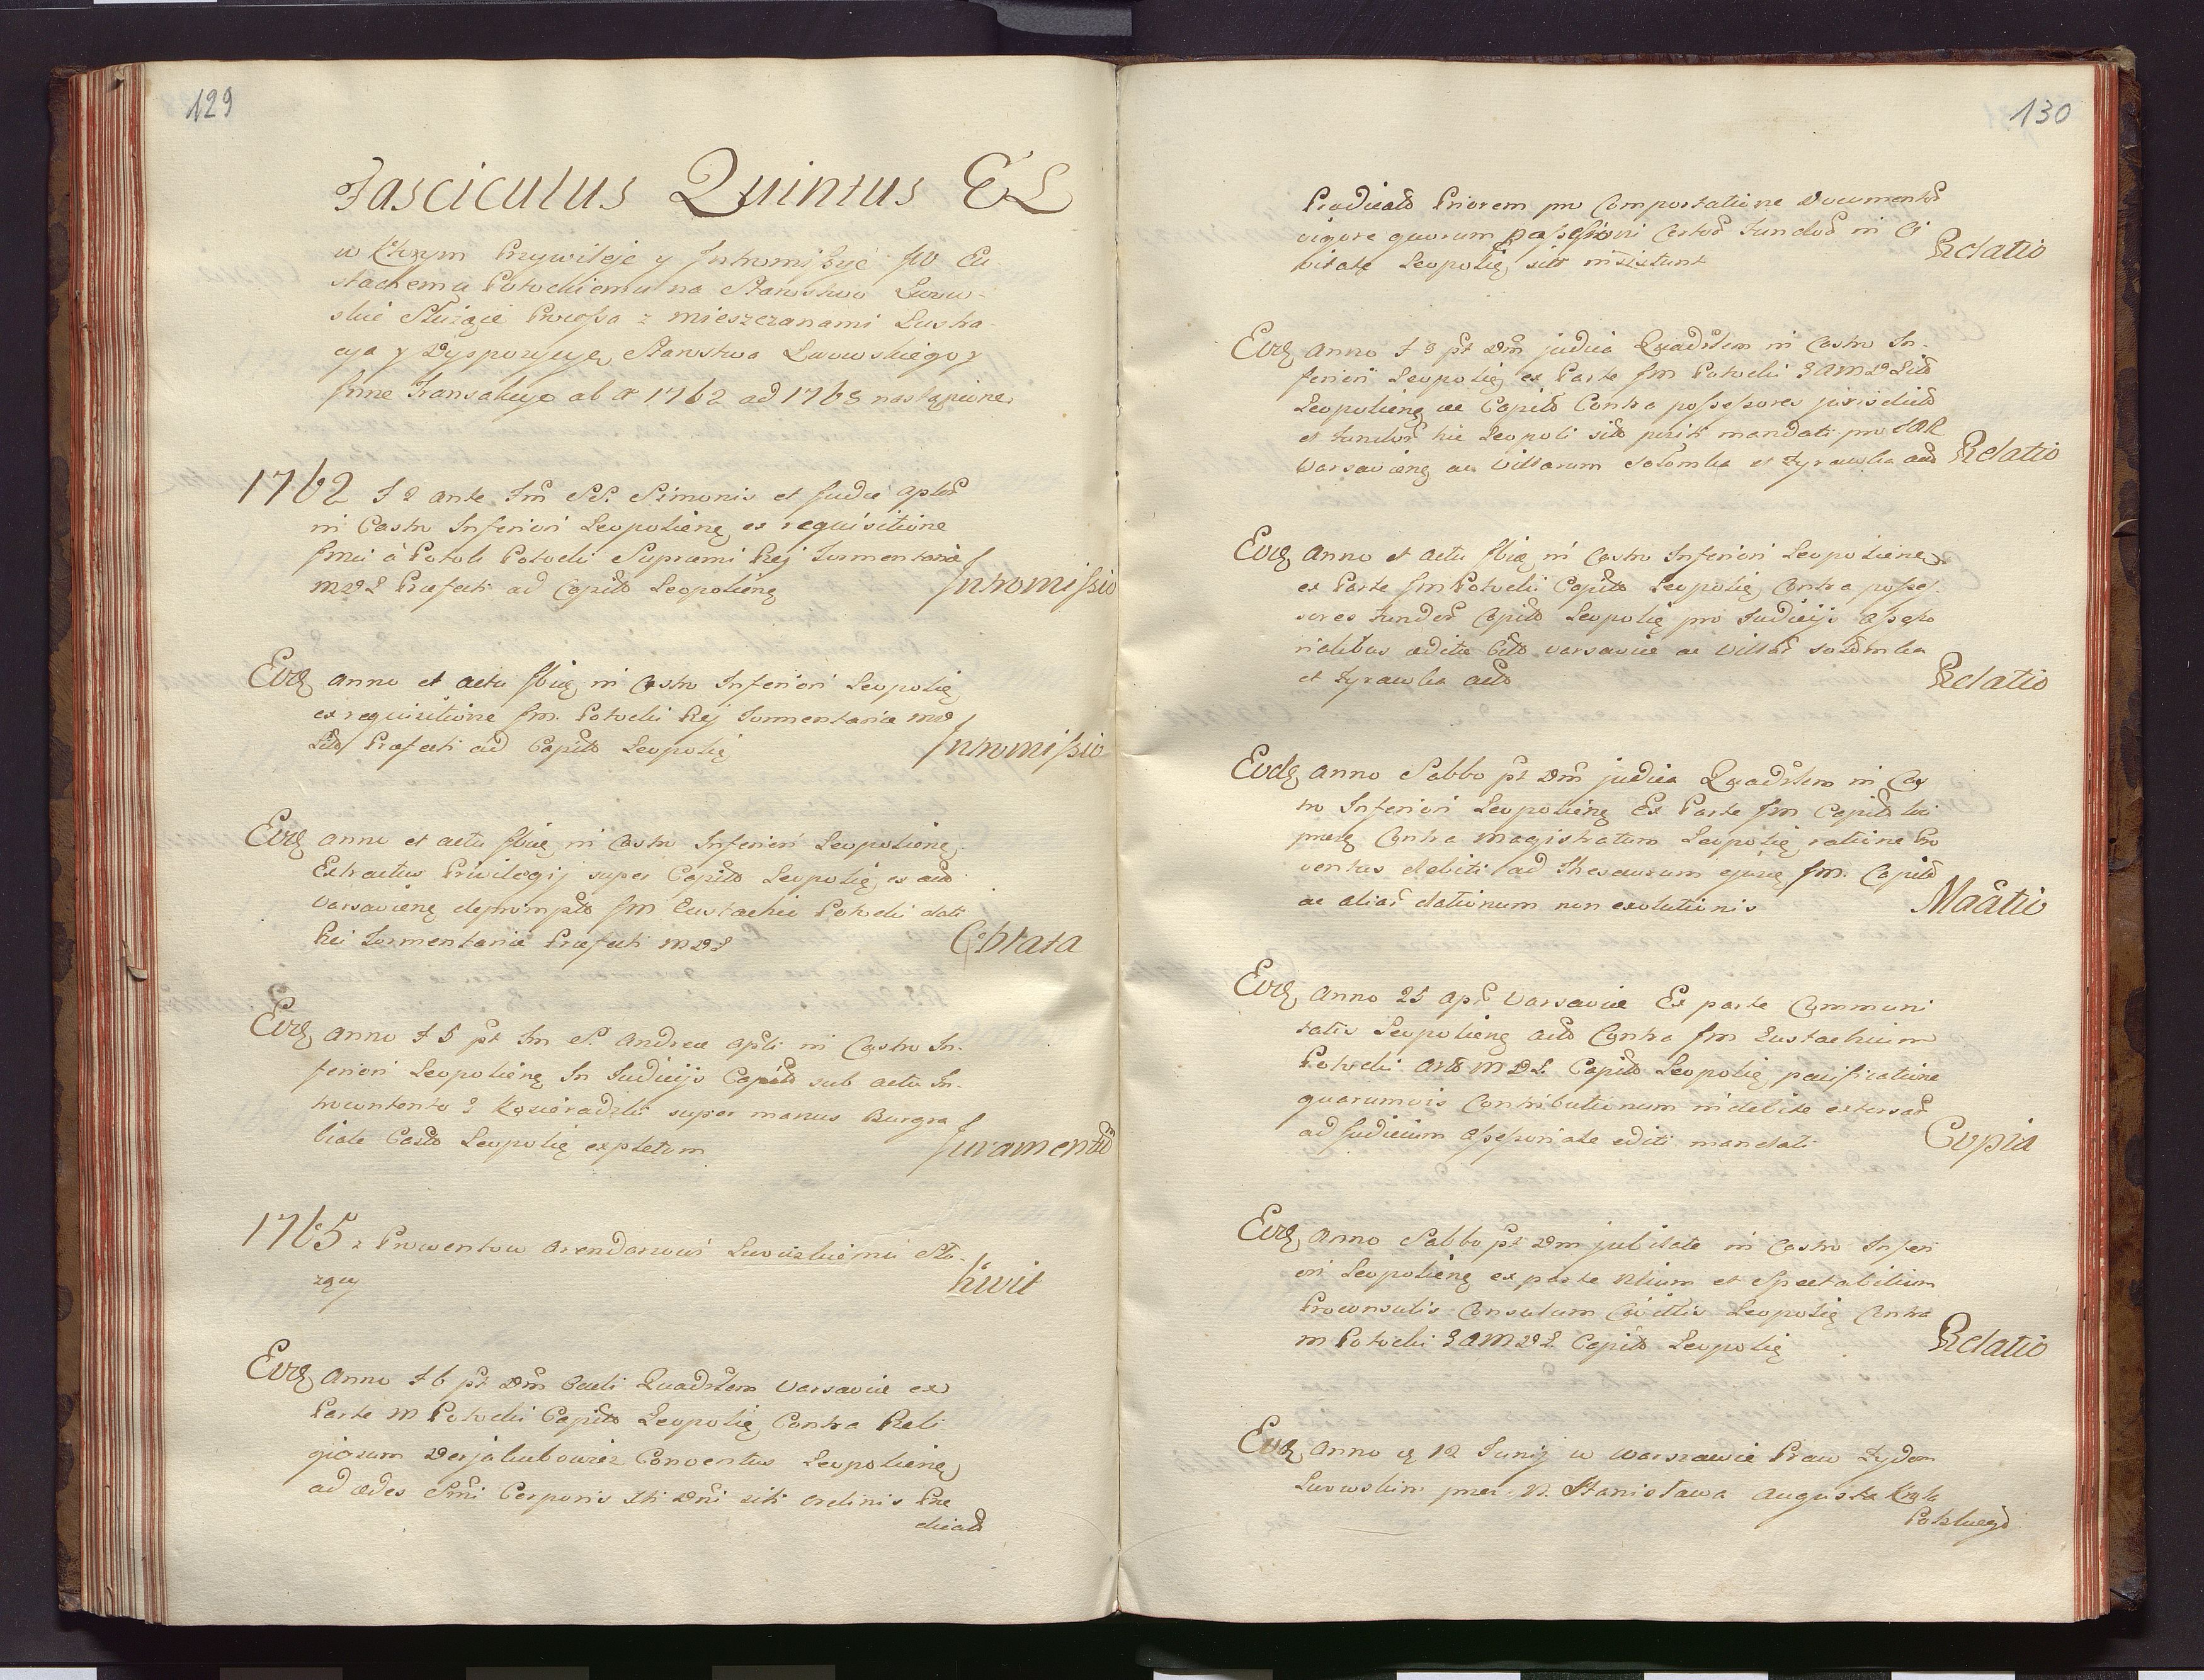 129
Fasciculus Quintus EL
w Ktorym Przywileje y Intromissye JW Eu
stachemu Potockiemu na Starostwo Lwow-
skie Służące Processa z mieszczanami Lustra
cya y Dyspozycye Starostwa Lwowskiego y
Inne Transakcye ab A 1762 ad 1768 nastąpione
1762 F 2 ante Fm SS. Simonis et Judae Aptor
in Castro Inferiori Leopolien ex requisitione
Potok Potocki Supremi Rej Tormentariae
M D L Praefecti ad Capit Leopolien Intromissio
Eod anno et actu in Castro Inferiori Leopolien
ex requisitione Im. Potocki Rej Tormentariae MD
Lit Praefecti ad Capit Leopolien Intromissio
Eod anno et actu in Castro Inferiori Leopolien
Extractus Privilegij super Capit Leopolien ex act
Varsavien deprompt Im Eustachio Potocki dati
Rei Tormentariae Praefecti M D L Oblata
Eod anno F 5 pt Fm S. Andreae Apli in Castro In-
feriori Leopolien In Judicijs Capit sub actu In-
trocontento G super manus Burgra
biale Cast Leopolien expletum Juramentu
1765 z Prowentow Arendarzowi Lwowskiemu słu-
żący Kwit
Eod Anno F 6 pt Dm Oculi Quadrlem Varsaviae ex
Parte M Potocki Capit Leopolien Contra Reli
giosum Derjakubowicz Conventus Leopolien
ad aedes Smi Corporis Xti Dni siti ordinis Prae
dicat
130
Praedicat Priorem pro Comportatione Documentor
vigore quorum possessioni certor Fundor in Ci
vitate Leopolien sitt insistunt Relatio
Eod Anno F 3 pt Dm judica Quadrlem in Castro In-
feriori Leopolien ex Parte Im Potocki G A M D Lit
Leopolien ac Capit Contra possessores jurisdict
et Fundor hic Leopoli sit positi mandati pro
Varsavien ac Villarum Sołomka et Żyrawka act Relatio
Eod Anno et actu in Castro Inferiori Leopolien
ex Parte Im Potocki Capit Leopolien Contra posse
sores Fundor Capit Leopolien pro Judicijs Assesso
rialibus aeditae Cit Varsaviae ac Villar Sołomka
et Żyrawka act Relatio
Eod Anno Sabbo pt Dm judica Quadrlem in Cas
tro Inferiori Leopolien Ex Parte Im Capit
Contra Magistratum Leopolien ratione Pro
ventus debiti ad Thesaurum ejusq Im. Capit
ac aliar dationum non exolutionis Maatio
Eod Anno 25 Apr Varsaviae Ex parte Communi
tatis Leopolien act Contra Im Eustachium
Potocki Art M D L Capit Leopolien pacificatione
quarumvis Contributionum indebite extersar
ad Judicium Assessoriale editi mandati Copia
Eod Anno Sabbo pt Dm jubilate in Castro Inferi
ori Leopolien ex parte Nlium et Spectabilium
Proconsulis Consulum Civittis Leopolien Contra
M Potocki G A M D L Capit Leopolien Relatio
Eod Anno 12 Junij w Warszawie Praw Żydom
Lwowskim przez N. Stanisława Augusta Krola
Polskiego